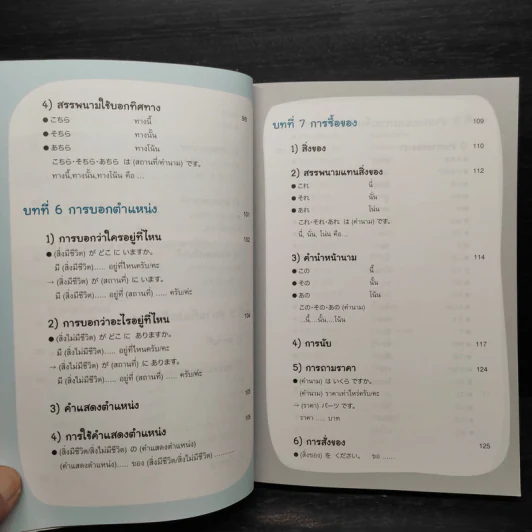 4) สรรพนามใช้บอกทิศทาง
● こちら ทางนี้
● そちら ทางนั้น
● あちら ทางโน้น
こちら・そちら・あちら は (สถานที่/คำนาม) です。
ทางนี้,ทางนั้น,ทางโน้น คือ ...
บทที่ 6 การบอกตำแหน่ง
1) การบอกว่าใครอยู่ที่ไหน
● (สิ่งมีชีวิต) が どこ に いますか。
มี (สิ่งมีชีวิต)..... อยู่ที่ไหนครับ/คะ
→ (สิ่งมีชีวิต) が (สถานที่) に います。
มี (สิ่งมีชีวิต)..... อยู่ที่ (สถานที่) ..... ครับ/ค่ะ
2) การบอกว่าอะไรอยู่ที่ไหน
● (สิ่งไม่มีชีวิต) が どこ に ありますか。
มี (สิ่งไม่มีชีวิต)..... อยู่ที่ไหนครับ/คะ
→ (สิ่งไม่มีชีวิต) が (สถานที่) に あります。
มี (สิ่งไม่มีชีวิต)..... อยู่ที่ (สถานที่) ..... ครับ/ค่ะ
3) คำแสดงตำแหน่ง
4) การใช้คำแสดงตำแหน่ง
● (สิ่งมีชีวิต/สิ่งไม่มีชีวิต) の (คำแสดงตำแหน่ง)
(คำแสดงตำแหน่ง)..... ของ (สิ่งมีชีวิต/สิ่งไม่มีชีวิต) .........
บทที่ 7 การซื้อของ 109
1) สิ่งของ 110
2) สรรพนามแทนสิ่งของ 112
● これ นี่
● それ นั่น
● あれ โน่น
これ・それ・あれ は (คำนาม) です。
นี่, นั่น, โน่น คือ...
3) คำนำหน้านาม 114
● この นี้
● その นั้น
● あの โน้น
この・その・あの (คำนาม)
...นี้, ...นั้น, ...โน้น
4) การนับ 117
5) การถามราคา 124
● (คำนาม) は いくら ですか。
(คำนาม) ราคาเท่าไหร่ครับ/คะ
→ (ราคา) バーツ です。
ราคา ..... บาท
6) การสั่งของ 125
● (สิ่งของ) を ください。 ขอ ......